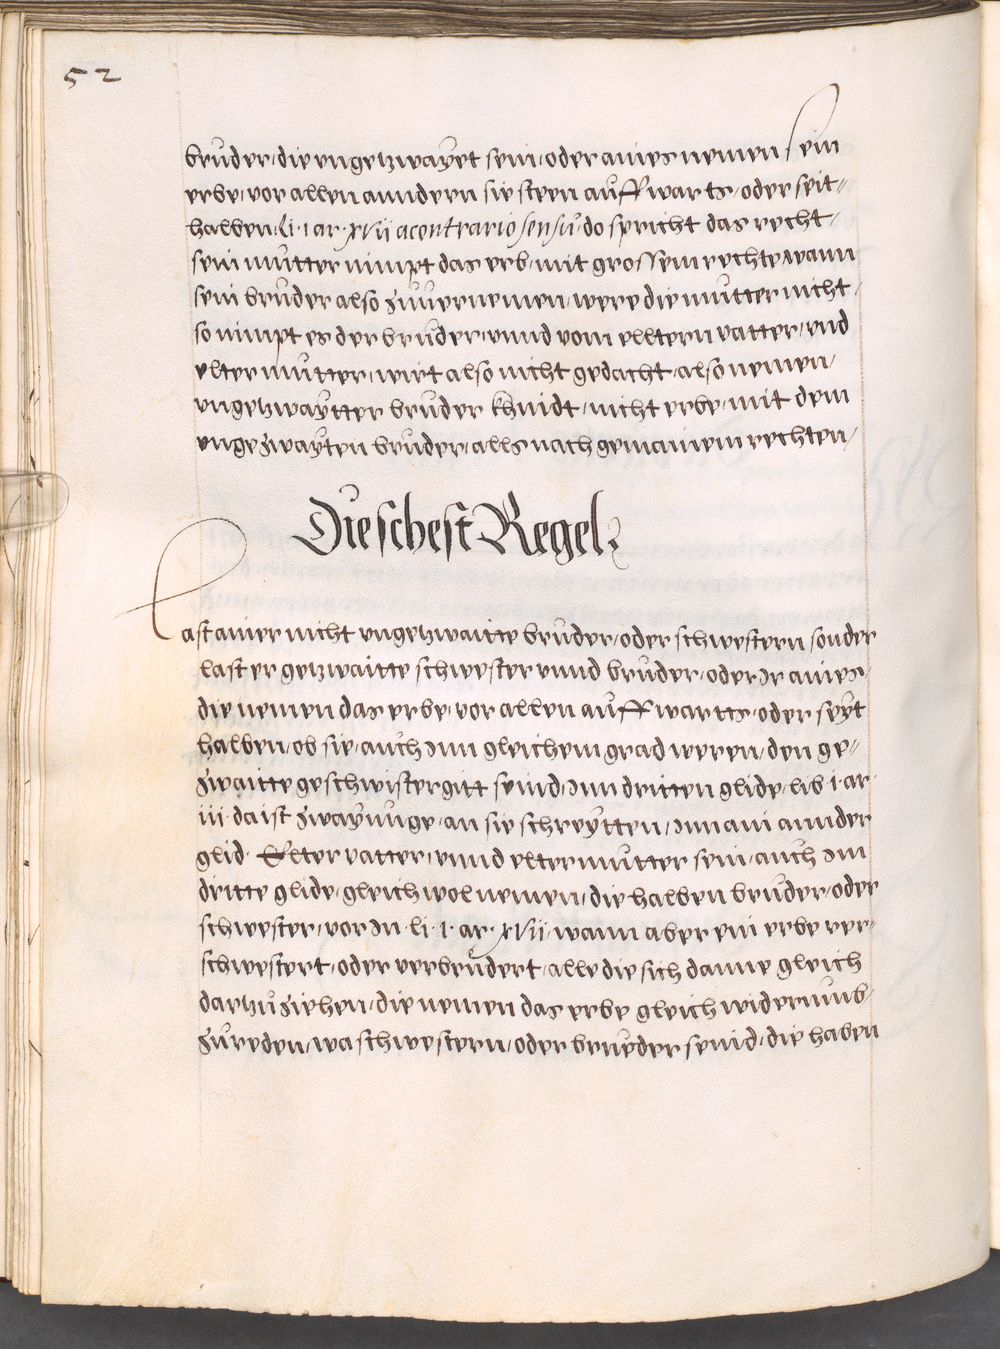 52
bruder, die ungetzwayet sein, oder aines nemen sein
erbe, vor allen anndern sie steen auffwarts, oder seit=
halben, li. 1 ar. xvii a contrario sensu, do spricht das recht,
sein mutter nimpt das erb, mit grossem rechte, wann
sein bruder also zuuernemen, were die mutter nicht,
so nimpt es der bruder, unnd vom elltern vatter, und
elter mutter, wirt also nicht gedacht, also nemen,
ungetzwaytter bruder khindt, nicht erbe, mit dem
ungezwayten bruder, alls nach gemainem rechten,
Die schest Regel
Last ainer nicht ungetzwaitte bruder, oder schwestern sonder
last er getzwaitte schwester unnd bruder, oder Jr aines,
die nemen das erbe, vor allen auffwartts, oder seyt
halben, ob sie, auch Jnn gleichem grad weren, den ge=
zwaitte geschwistergitt seind, Jnn dritten glide, lib 1. ar
iii. da ist zwayunge, an sie schreytten, Jnn ain annder
glid. Elter vatter, unnd eltermutter sein, auch Jm
dritte glide, gleichwol nemen, die halben bruder, oder
schwester, vor Jn li. 1. ar. xvii, wann aber ein erbe ver=
schwestert, oder verbrudert, alle die sich danne gleich
dartzu ziehen, die nemen das erbe gleich widerumb,
zureden, wa schwestern, oder brueder seind, die haben